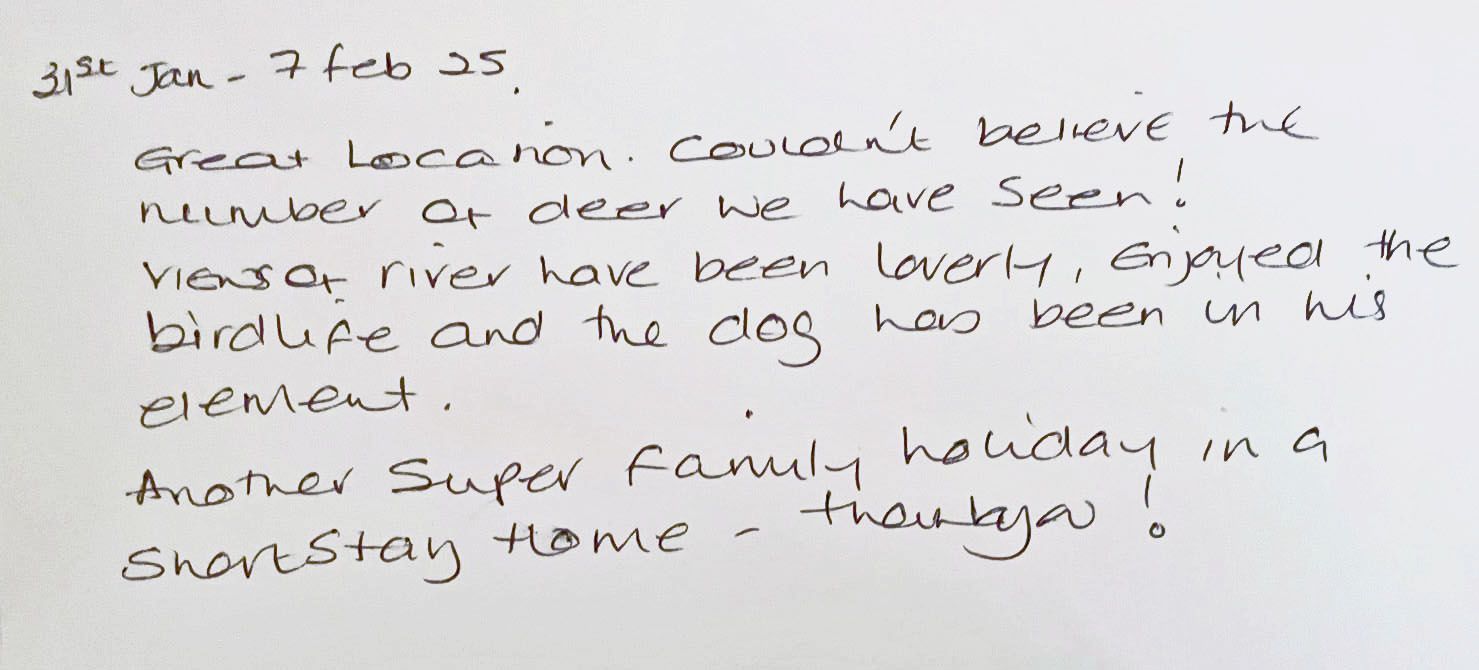 31st Jan - 7 feb 25.
Great Location. Couldn't believe the
number of deer we have seen!
Views of river have been loverly, Enjoyed the
birdlife and the dog has been in his
element.
Another Super family holiday in a
ShortStay Home - thankyou!